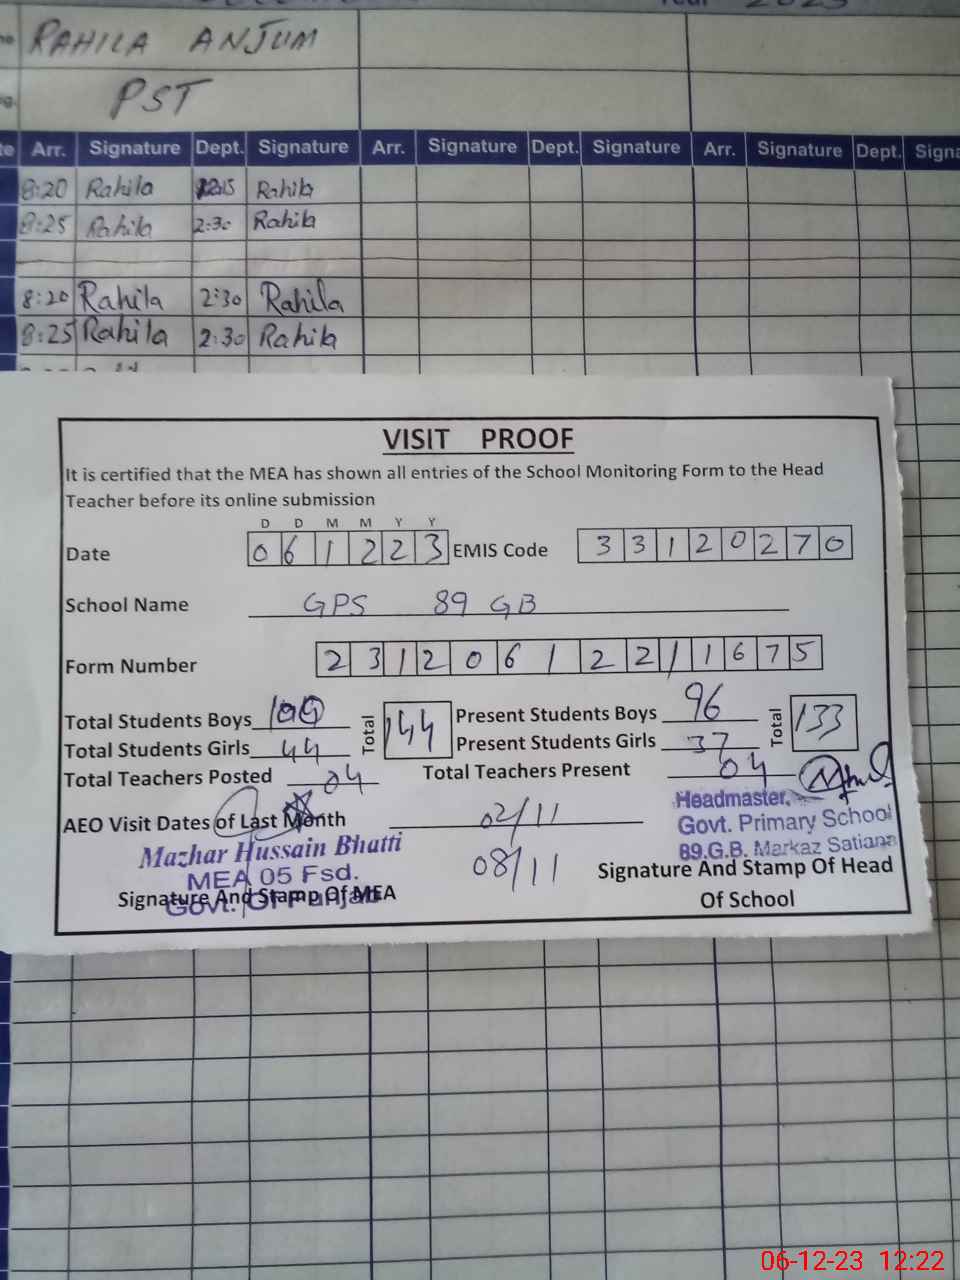 RAHILA ANJUM
PST
Arr. Signature Dept. Signature Arr. Signature Dept. Signature Arr. Signature Dept.
8:20 Rahila Rahila
8:25 Rahila 2:30 Rahila
8:20 Rahila 2:30 Rahila
8:25 Rahila 2:30 Rahila
VISIT PROOF
It is certified that the MEA has shown all entries of the School Monitoring Form to the Head
Teacher before its online submission
D D M M Y Y
Date 061223 EMIS Code 33120270
School Name GPS 89 GB
Form Number 23120612211675
Total Students Boys 100 Total 144 Present Students Boys 96 Total 133
Total Students Girls 44 Present Students Girls 37
Total Teachers Posted 04 Total Teachers Present 04
AEO Visit Dates of Last Month 02/11
08/11
Mazhar Hussain Bhatti
MEA 05 Fsd.
Govt. Of Punjab
Signature And Stamp Of MEA
Headmaster,
Govt. Primary School
89.G.B. Markaz Satiana
Signature And Stamp Of Head
Of School
06-12-23 12:22